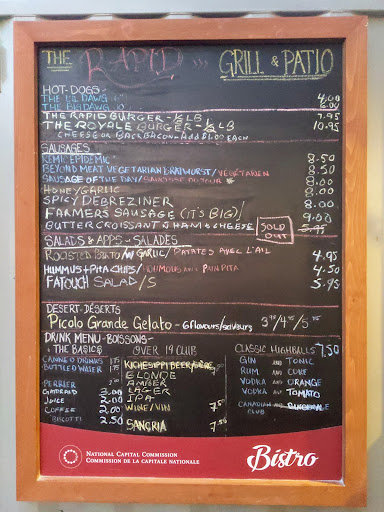 THE RAPID GRILL & PATIO
HOT-DOGS-
THE LIL DAWG 4.00
THE BIG DAWG 6.00
THE RAPID BURGER-¼LB 7.95
THE ROYALE BURGER-½LB 10.95
CHEESE OR BACK BACON-ADD $1.00 EACH
SAUSAGES
KEMIC EPIDEMIC 8.50
BEYOND MEAT VEGETARIAN BRATWURST/VEGETARIEN 8.50
SAUSAGE OF THE DAY/SAUCISSE DU JOUR 8.00
HONEY GARLIC 8.00
SPICY DEBREZINER 8.00
FARMERS SAUSAGE (IT'S BIG)/ 9.00
BUTTER CROISSANT & HAM & CHEESE SOLD OUT 5.95
SALADS & APPS - SALADES
ROASTED POTATO/W GARLIC/PATATES AVEC L'AIL 4.95
HUMMUS + PITA CHIPS/HOUMOUS AVEC PAIN PITA 4.50
FATOUCH SALAD/S 5.95
DESERT-DÉSERTS
Picolo Grande Gelato - 6 flavours/saveurs
DRINK MENU-BOISSONS-
THE BASICS OVER 19 CLUB CLASSIC HIGHBALLS 7.50
CANNED DRINKS 1.75 KICHESIPPI BEER/BIÈRE GIN AND TONIC
BOTTLED WATER 1.75 BLONDE RUM AND COKE
PERRIER 2.00 AMBER VODKA AND ORANGE
GATORAID 3.00 LAGER VODKA AND TOMATO
JUICE 2.00 IPA CANADIAN CLUB AND GINGERALE
COFFEE 2.00 WINE/VIN 7.50
BISCOTTI 2.50 SANGRIA 7.50
NATIONAL CAPITAL COMMISSION
COMMISSION DE LA CAPITALE NATIONALE
Bistro